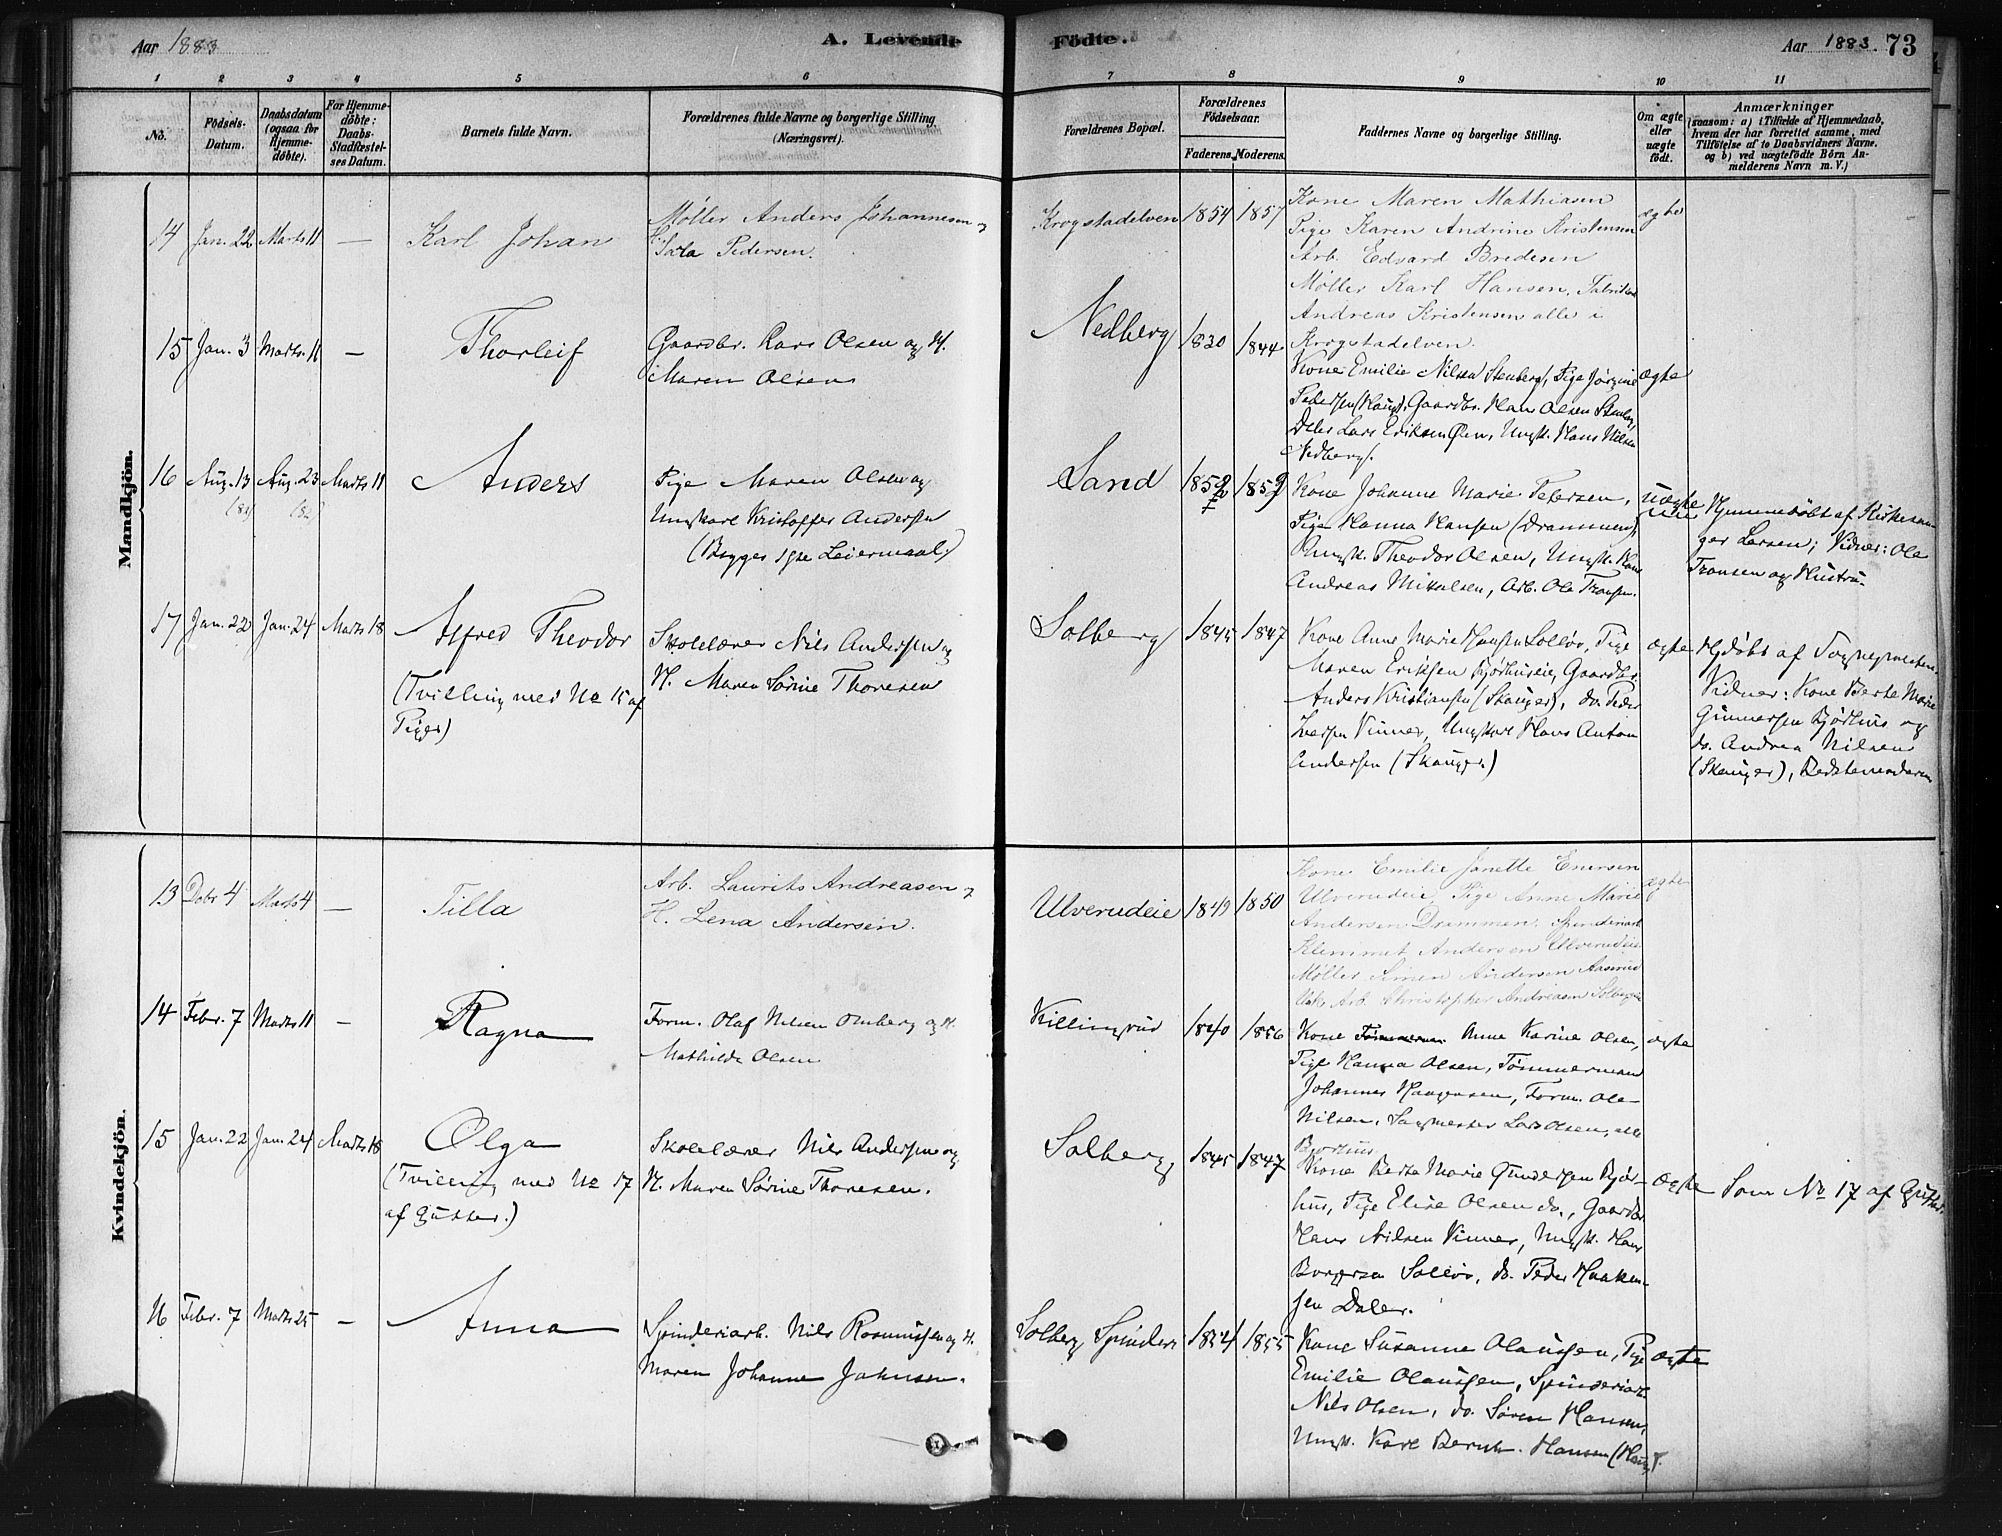 Aar 1883
A. Levende
Födte.
Aar 1883. 73
1 2 3 4 5 6 7 8 9 10 11
No.
Födsels-
Datum.
Daabsdatum
(ogsaa for
Hjemme-
döbte).
For Hjemme-
döbte:
Daabs-
Stadfæstel-
ses Datum.
Barnets fulde Navn.
Forældrenes fulde Navne og borgerlige Stilling
(Næringsvei).
Forældrenes Bopæl.
Forældrenes
Födselsaar.
Faderens. Moderens.
Faddernes Navne og borgerlige Stilling.
Om ægte
eller
uægte
födt.
Anmærkninger
(saasom: a) i Tilfælde af Hjemmedaab,
hvem der har forrettet samme, med
Tilföielse af to Daabsvidners Navne.
og b) ved uægtefödte Börn An-
melderens Navn m. V.)
Mandkjön.
14 Jan. 22 Marts 11 — Karl Johan
Møller Anders Johannesen og
H. Sara Pedersen.
Krogstadelven 1854 1857
Kone Maren Mathiasen
Pige Karen Andrine Kristensen
Arb. Edvard Bredesen
Møller Karl Hansen, Fabrikar
Andreas Kristensen alle i
Krogstadelven.
ægte
15 Jan. 3 Marts 11 — Thorleif
Gaardbr. Lars Olsen og H.
Maren Olsen
Nedberg 1830 1844
Kone Emilie Nilsen Stenberg, Pige Jørgine
Pedersen (Haug), Gaardbr. Hans Olsen Stenberg,
Lars Eriksen Øen, Ungk. Hans Nilsen
Nedberg.
ægte
16 Aug. 13 Aug. 23 Marts 11 Anders
(82) (82)
Pige Maren Olsen og
Ungkarl Kristoffer Andersen
(Begges 1ste Leiermaal)
Sand 1859 1859
Kone Johanne Marie Petersen,
Pige Hanna Hansen (Drammen),
Ungk. Theodor Olsen, Ungk. Hans
Andreas Mikkelsen, Arb. Ole Fransen.
uægte
Hjemmedøbt af Kirkesan-
ger Larsen; Vidner: Ole
Fransen og Hustru.
17 Jan. 22 Jan. 24 Marts 18 Alfred Theodor
(Tvilling med No 15 af
Piger)
Skolelærer Nils Andersen og
H. Maren Sørine Thoresen
Solberg 1845 1847
Kone Anne Marie Hansen Solløs, Pige
Maren Eriksen Bjørhuseie, Gaardbr.
Anders Kristiansen (Skauger), do. Peder
Iversen Vinner, Ungkarl Hans Anton
Andersen (Skauger.)
ægte
Hjdøbt af Sognepresten.
Vidner: Kone Berte Marie
Gunnersen Bjørhus og
do. Andrea Nilsen
(Skauger), Bedstemoderen
Kvindekjön.
13 Debr 4 Marts 4 — Tilla
Arb. Laurits Andreasen og
H. Lena Andersen.
Ulverudeie 1849 1850
Kone Emilie Janette Enersen
Ulverudeie, Pige Anne Marie
Andersen Drammen, Spinderiarb.
Klemmet Andersen Ulverudeie
Møller Simen Andersen Aaserud
Arb. Christopher Andreasen
ægte
14 Febr. 7 Marts 11 — Ragna
Form. Olaf Nilsen Omberg og H.
Mathilde Olsen
Killingrud 1840 1856
Kone Anne Karine Olsen,
Pige Hanna Olsen, Tømmermand
Johannes Haagensen, Form. Ole
Nilsen, Sagmester Lars Olsen, alle
ægte
15 Jan. 22 Jan. 24 Marts 18 Olga
(Tvilling med No 17
af Gutter.)
Skolelærer Nils Andersen og
H. Maren Sørine Thoresen.
Solberg 1845 1847
Kone Berte Marie Gundersen Bjør-
hus, Pige Elise Olsen do., Gaardbr.
Hans Nilsen Vinner, Ungk. Hans
Borgersen Solløs, do. Peder Haaken-
sen Daler.
ægte
Som No 17 af Gutter.
16 Febr. 7 Marts 25 — Anna
Spinderiarb. Nils Rasmussen og H.
Maren Johanne Johnsen.
Solberg Spinderi 1854 1855
Kone Susanne Olaussen, Pige
Emilie Olaussen, Spinderiarb.
Nils Olsen, do. Søren Hansen,
Ungk. Karl Bernh. Hansen (Haug).
ægte